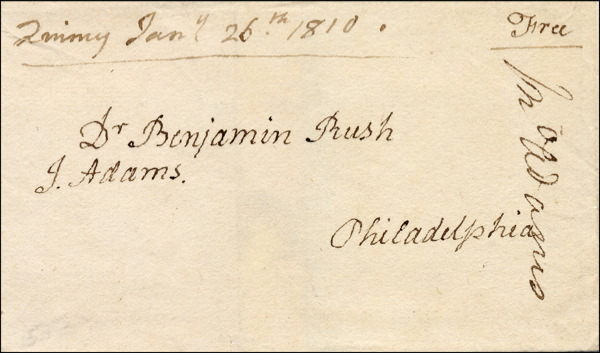 Quincy Jan.y 26.th 1810.
Free
Dr Benjamin Rush
J. Adams.
Philadelphia
Jn Adams